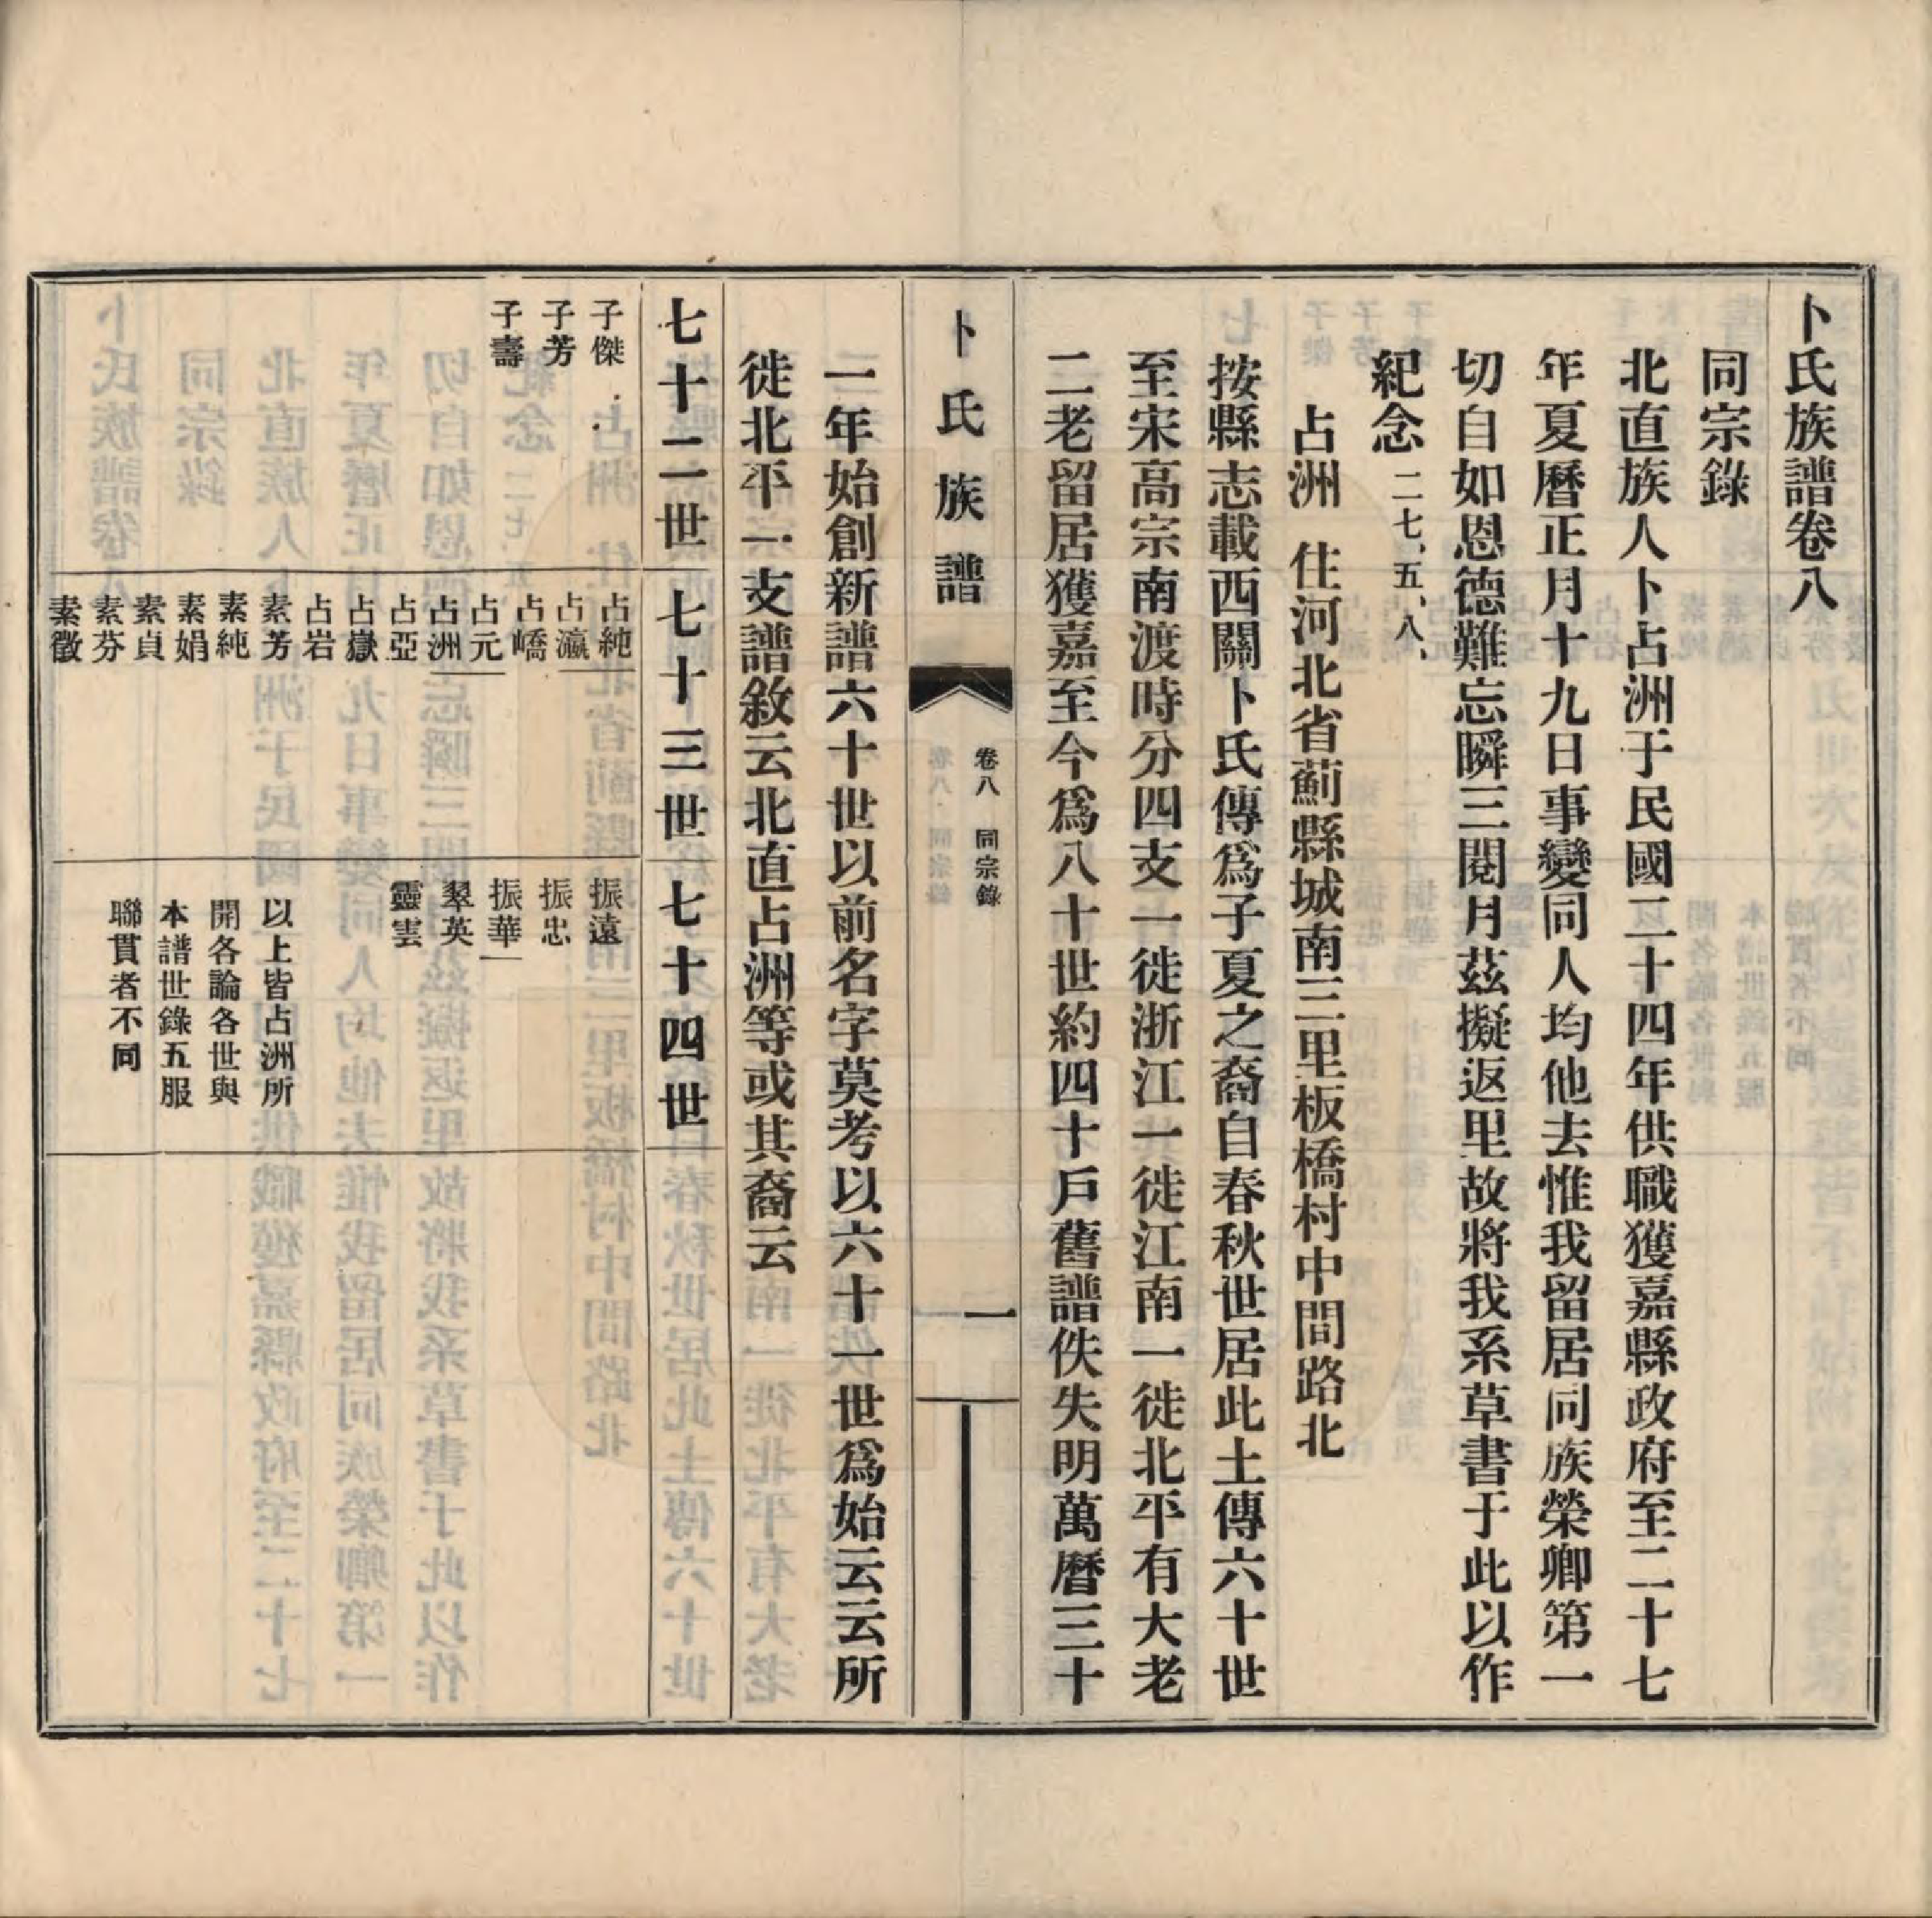 卜氏族譜卷八
同宗錄
北直族人卜占洲于民國二十四年供職獲嘉縣政府至二十七
年夏曆正月十九日事變同人均他去惟我留居同族榮卿第一
切自如恩德難忘瞬三閱月茲擬返里故將我系草書于此以作
紀念二七、五、八、
占洲 住河北省薊縣城南三里板橋村中間路北
按縣志載西關卜氏傳爲子夏之裔自春秋世居此土傳六十世
至宋高宗南渡時分四支一徙浙江一徙江南一徙北平有大老
二老留居獲嘉至今爲八十世約四十戶舊譜佚失明萬曆三十
卜氏族譜
卷八 同宗錄
一
一年始創新譜六十世以前名字莫考以六十一世爲始云云所
徙北平一支譜敘云北直占洲等或其裔云
七十二世
七十三世
七十四世
子傑
子芳
子壽
占純
占瀛
占嶠
占元
占洲
占亞
占嶽
占岩
素芳
素純
素娟
素貞
素芬
素徵
振遠
振忠
振華
翠英
靈雲
以上皆占洲所
開各論各世與
本譜世錄五服
聯貫者不同